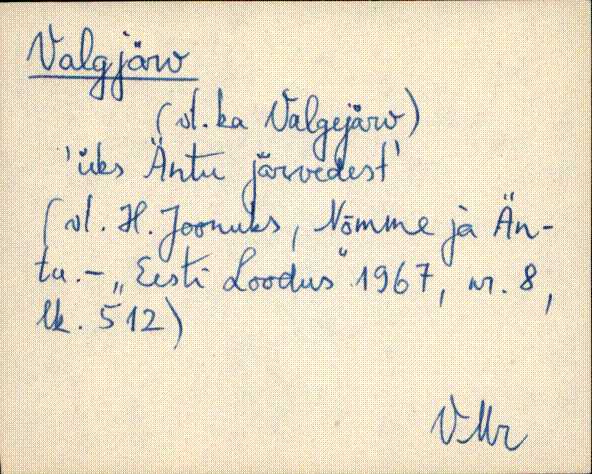 Valgjärv
(vt. ka Valgejärv)
'üks Äntu järvedest'
(vt. H. Joonuks, Nõmme ja Än-
tu. – „Eesti Loodus" 1967, nr. 8,
lk. 512)
VMr